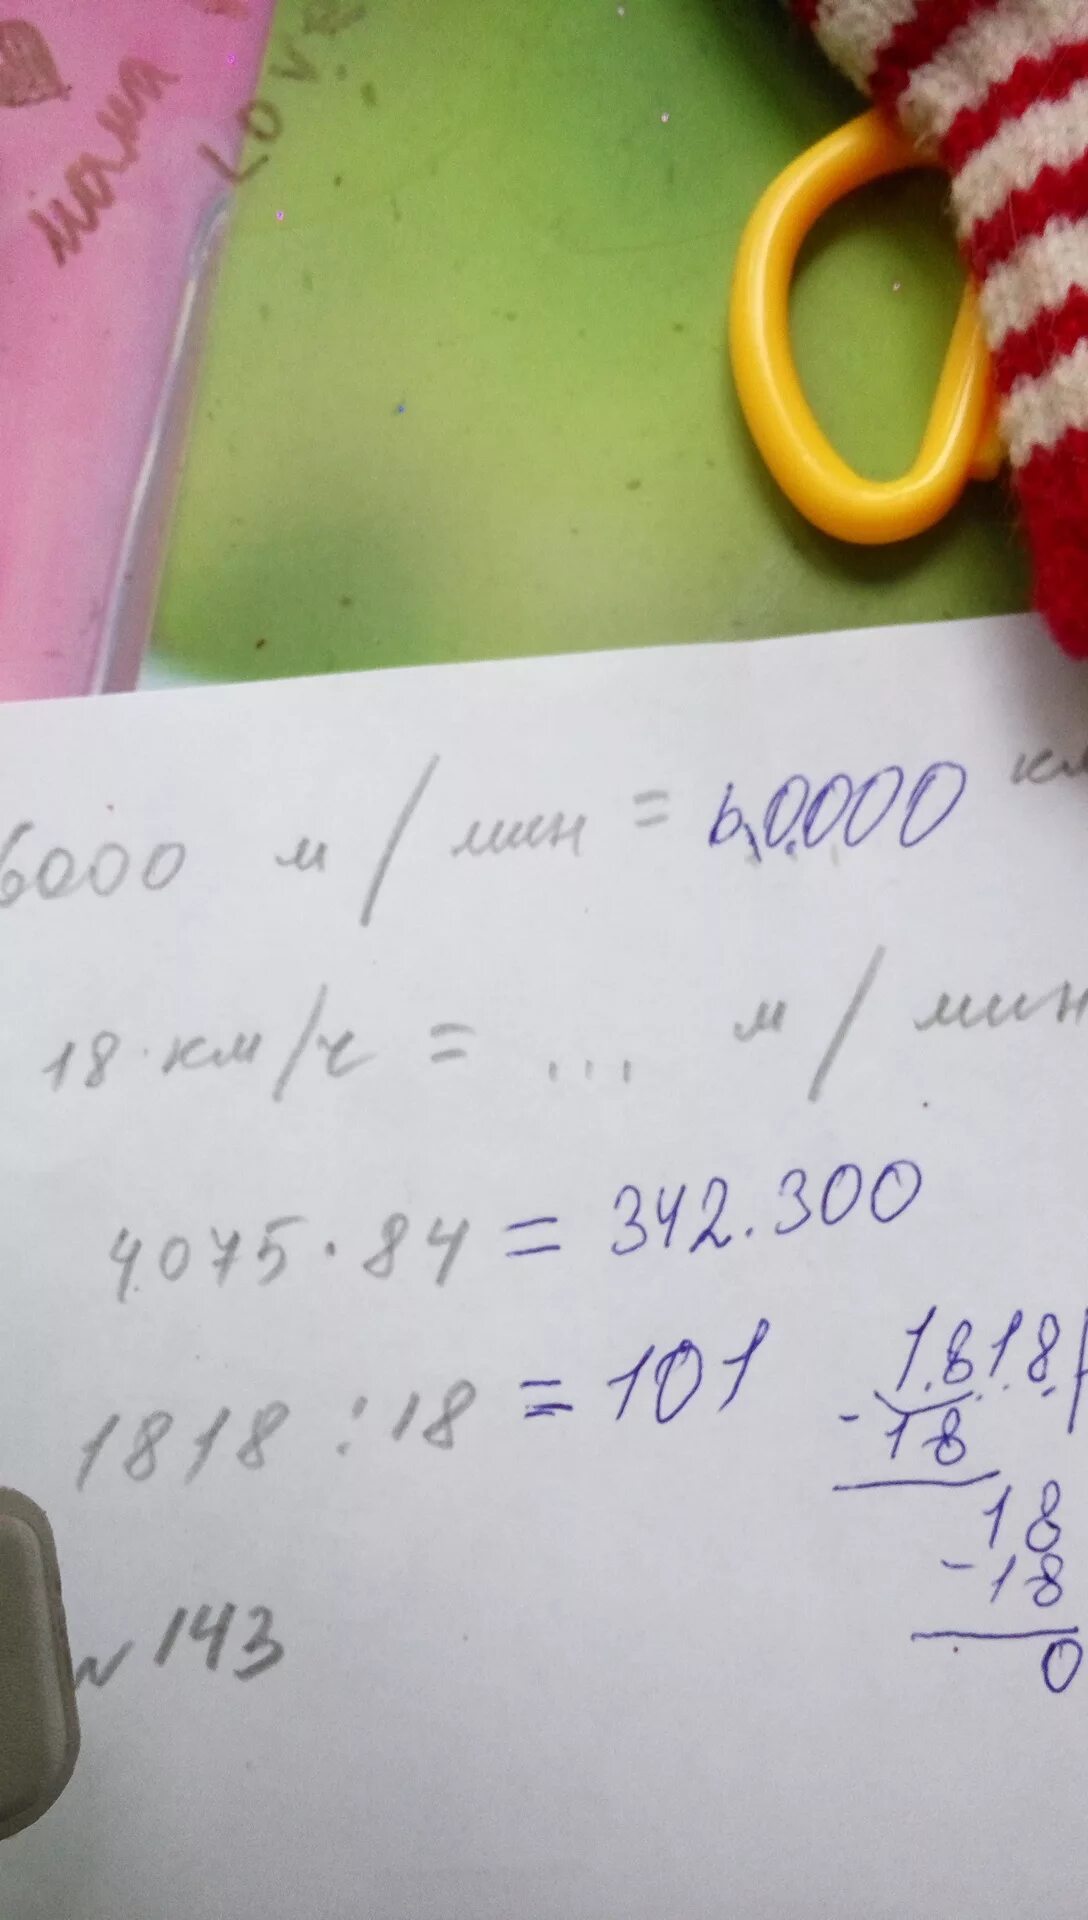 мама
LOVE
6000 м/мин = 6.0.000 км
18 км/ч = ... м/мин
4075 · 84 = 342.300
1818 : 18 = 101
1818
- 18
18
- 18
0
№ 143